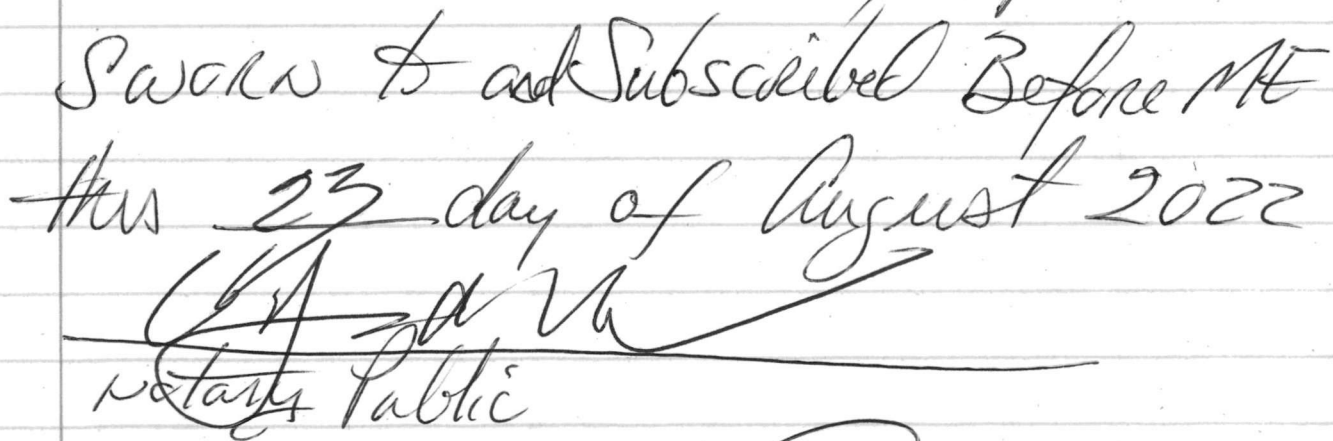 Sworn to and Subscribed Before ME
this 23 day of August 2022
Notary Public